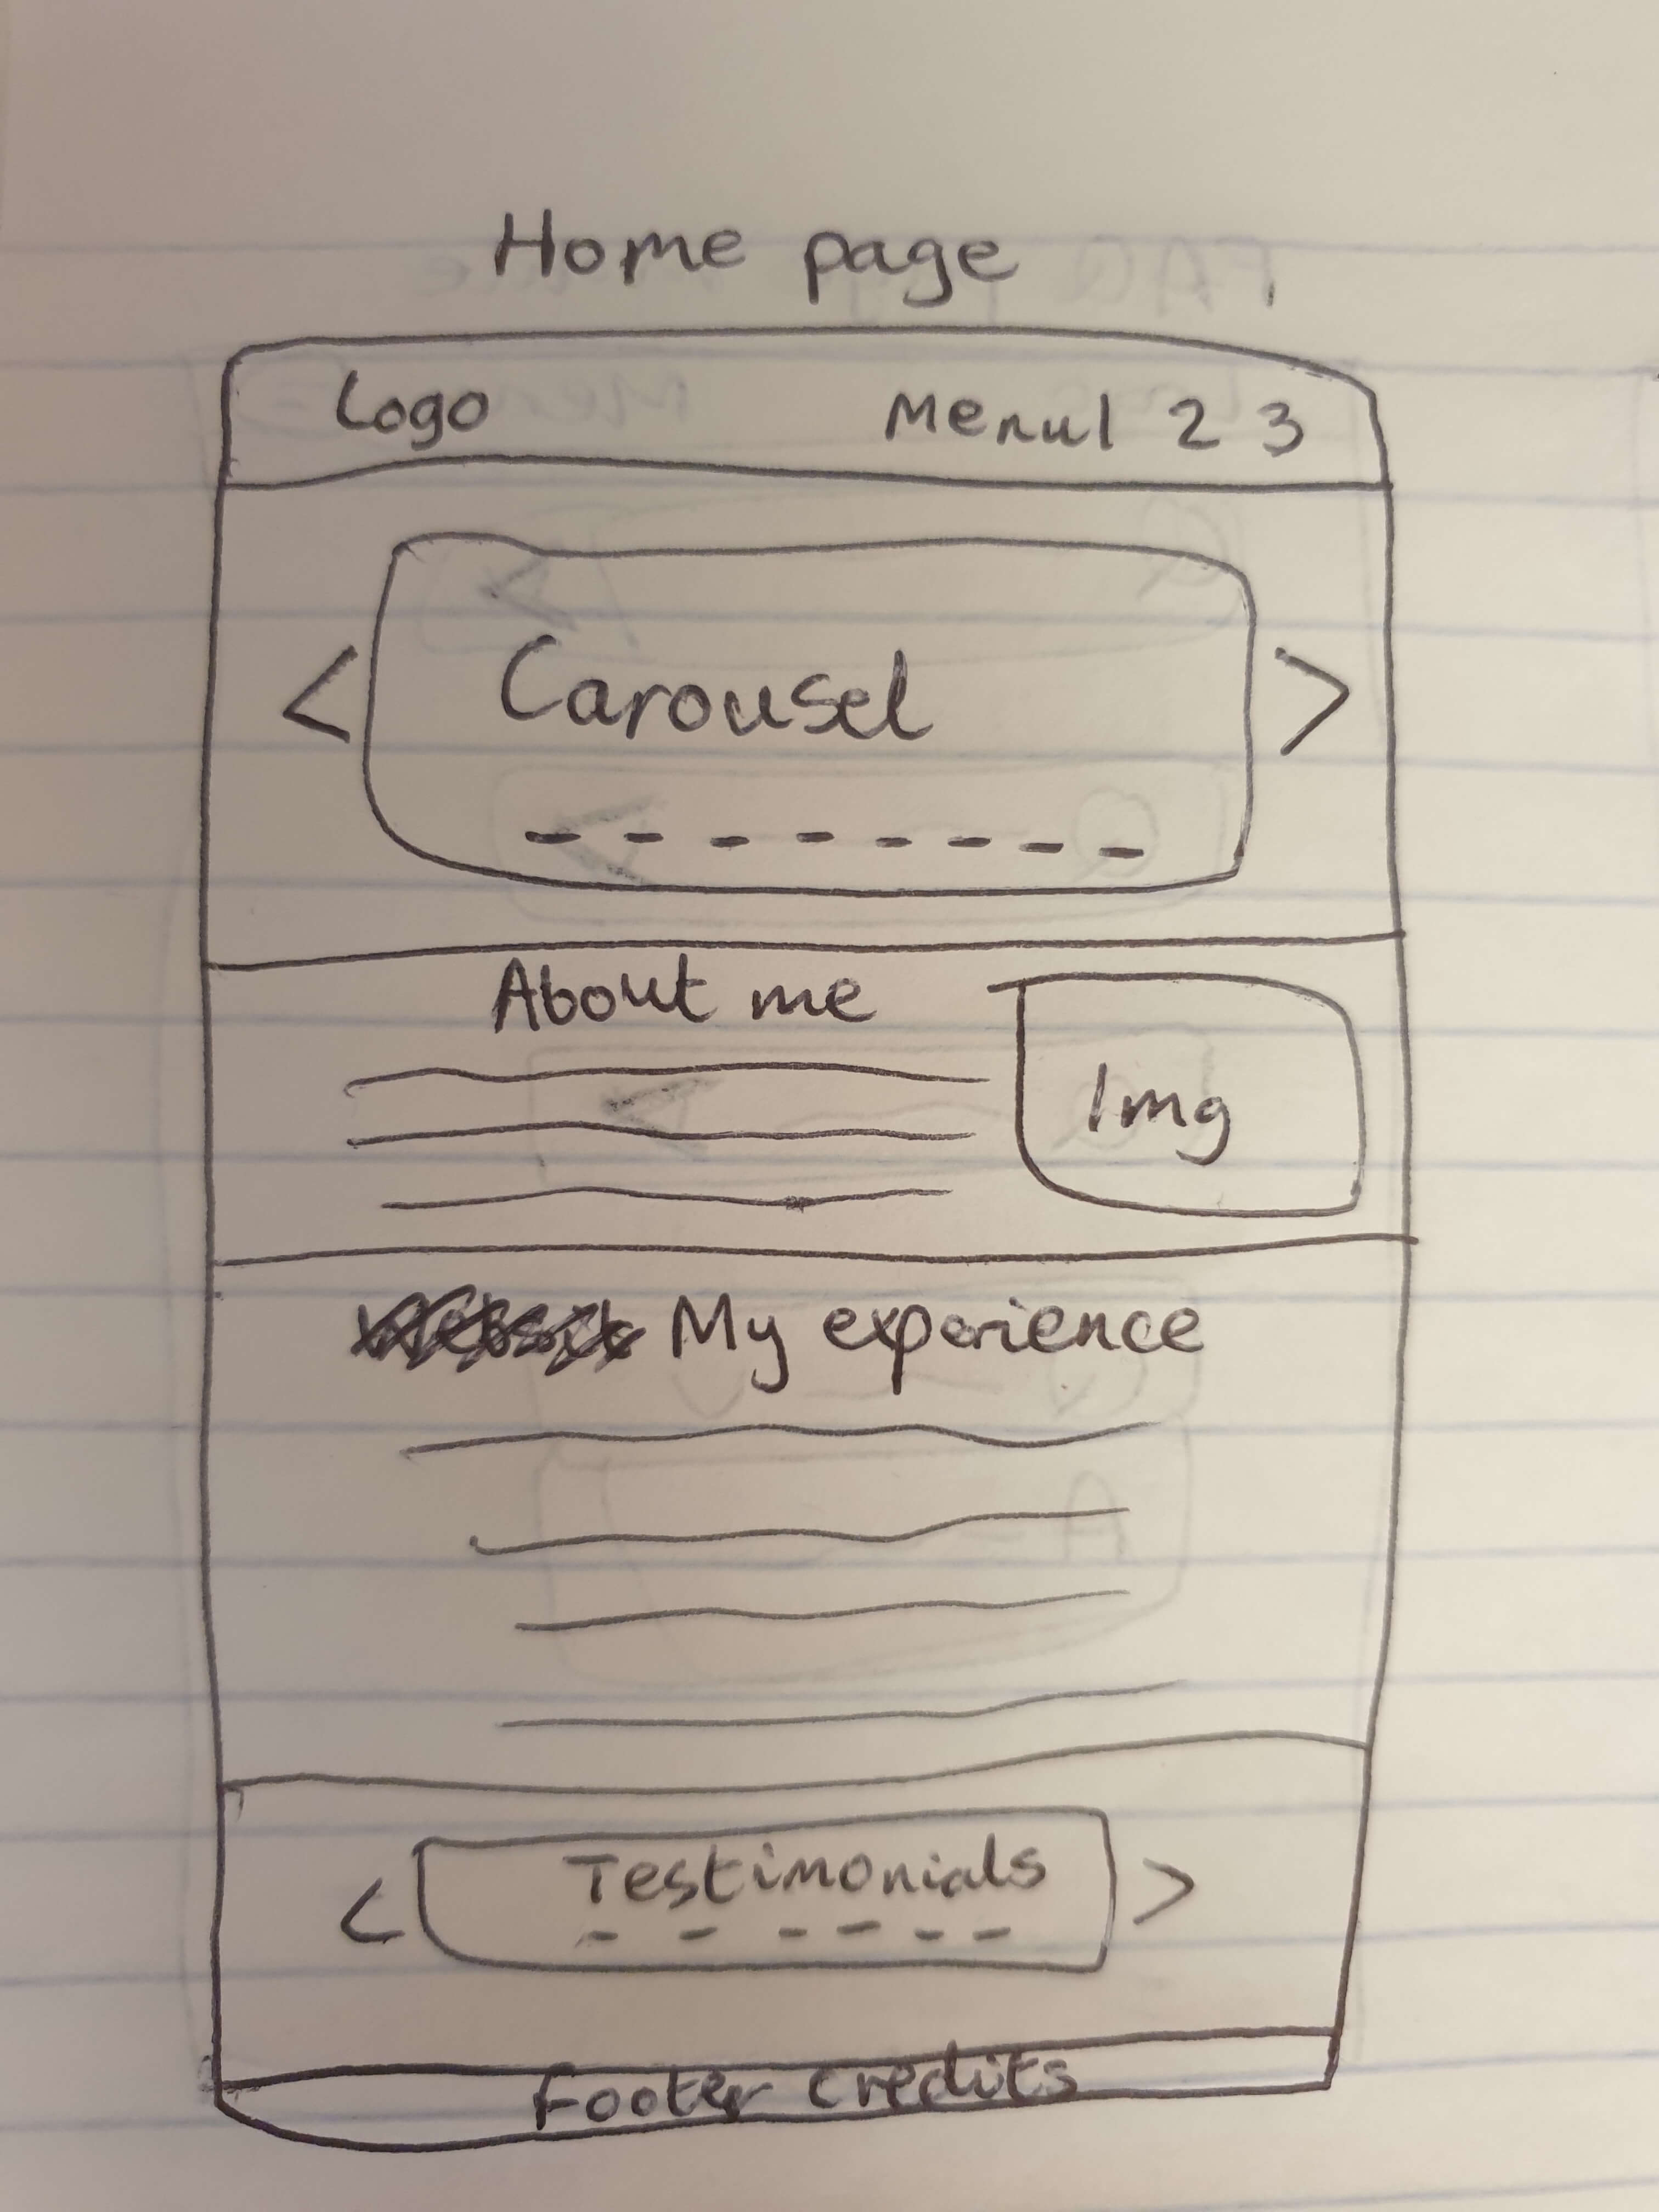 Home page
Logo Menu1 2 3
< Carousel >
About me
Img
My experience
Testimonials
< >
Footer credits